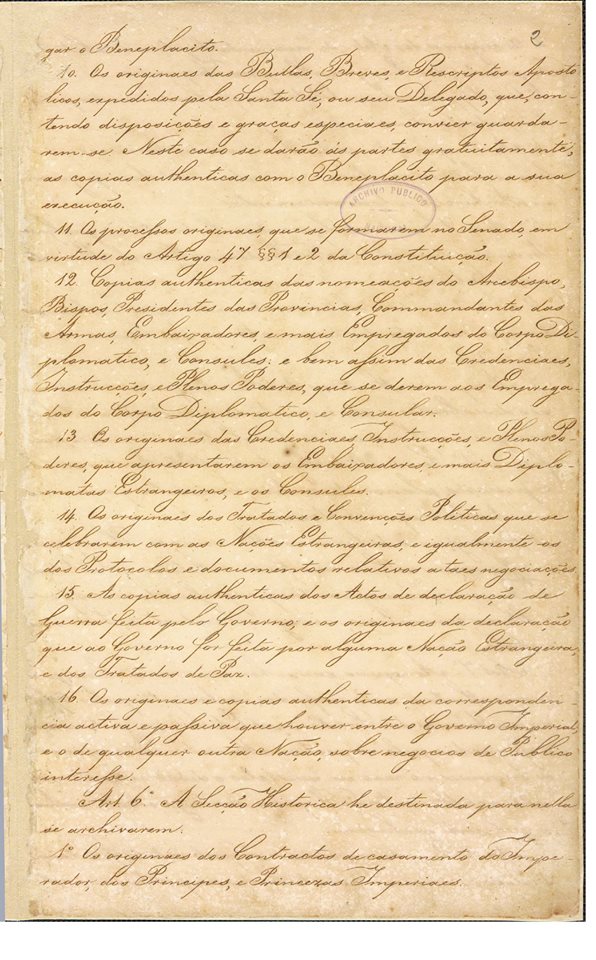 2
gar o Beneplacito.
10. Os originaes das Bullas, Breves, e Rescriptos Aposto
licos, expedidos pela Santa Sé, ou seu Delegado, que, con-
tendo disposições e graças especiaes, convier guarda-
rem-se. Neste caso se darão ás partes gratuitamente,
as copias authenticas com o Beneplacito para a sua
execução.
ARCHIVO PUBLICO
11. Os processos originaes, que se formarem no Senado, em
virtude do Artigo 47 §§ 1 e 2 da Constituição.
12. Copias authenticas das nomeações do Arcebispo,
Bispos, Presidentes das Provincias, Commandantes das
Armas, Embaixadores, e mais Empregados do Corpo Di-
plomatico, e Consules: e bem assim das Credenciaes,
Instrucções, e Plenos Poderes, que se derem aos Emprega-
dos do Corpo Diplomatico, e Consular.
13. Os originaes das Credenciaes Instrucções, e Plenos Po-
deres, que apresentarem os Embaixadores, e mais Diplo-
matas Estrangeiros, e os Consules.
14. Os originaes dos Tratados e Convenções Politicas que se
celebrarem com as Nações Estrangeiras, e igualmente os
dos Protocolos e documentos relativos a taes negociações.
15. As copias authenticas dos Actos de declaração de
Guerra feita pelo Governo; e os originaes da declaração
que ao Governo for feita por alguma Nação Estrangeira,
e dos Tratados de Paz.
16. Os originaes e copias authenticas da corresponden
cia activa e passiva que houver entre o Governo Imperial,
e o de qualquer outra Nação, sobre negocios de Publico
interesse.
Art. 6º A Secção Historica he destinada para nella
se archivarem.
1º Os originaes dos Contractos de casamento do Impe-
rador, dos Principes, e Princezas Imperiaes.